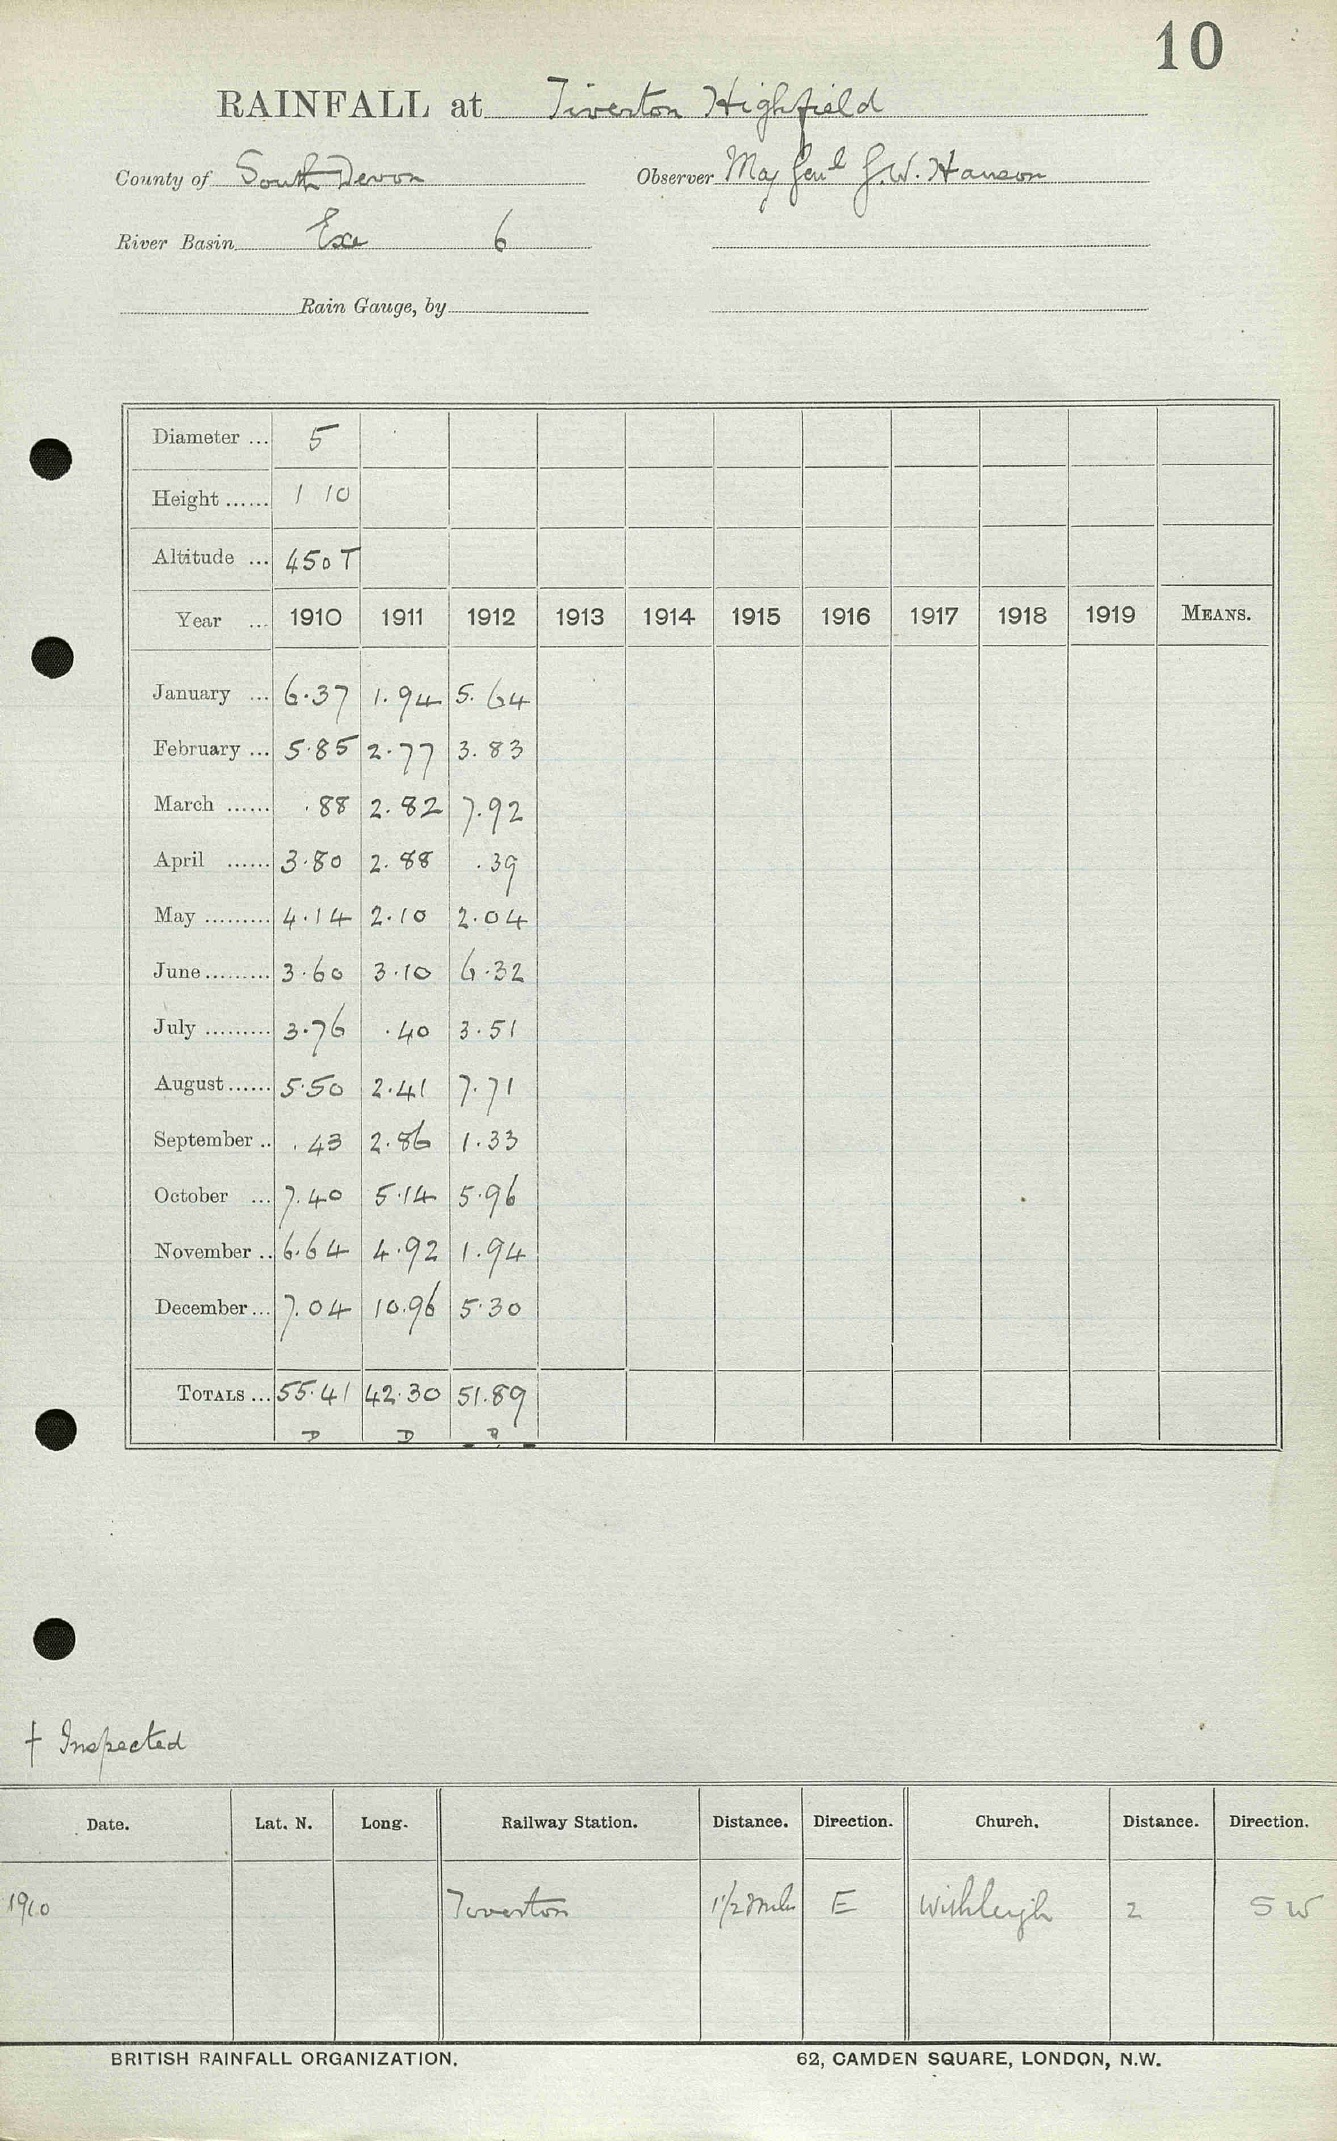 10
RAINFALL at Tiverton Highfield
County of South Devon Observer Maj Genl J.W. Hanson
River Basin Exe 6
Rain Gauge, by
Diameter ... 5
Height ...... 1 10
Altitude ... 450 T
Year ... 1910 1911 1912 1913 1914 1915 1916 1917 1918 1919 MEANS.
January ... 6.37 1.94 5.64
February ... 5.85 2.77 3.83
March ...... .88 2.82 7.92
April ...... 3.80 2.88 .39
May ......... 4.14 2.10 2.04
June ......... 3.60 3.10 6.32
July ......... 3.76 .40 3.51
August ...... 5.50 2.41 7.71
September .. .43 2.86 1.33
October ... 7.40 5.14 5.96
November .. 6.64 4.92 1.94
December ... 7.04 10.96 5.30
TOTALS ... 55.41 42.30 51.89
D D
† Inspected
Date. Lat. N. Long. Railway Station. Distance. Direction. Church. Distance. Direction.
1910 Tiverton 1 1/2 mils E Withleigh 2 SW
BRITISH RAINFALL ORGANIZATION. 62, CAMDEN SQUARE, LONDON, N.W.